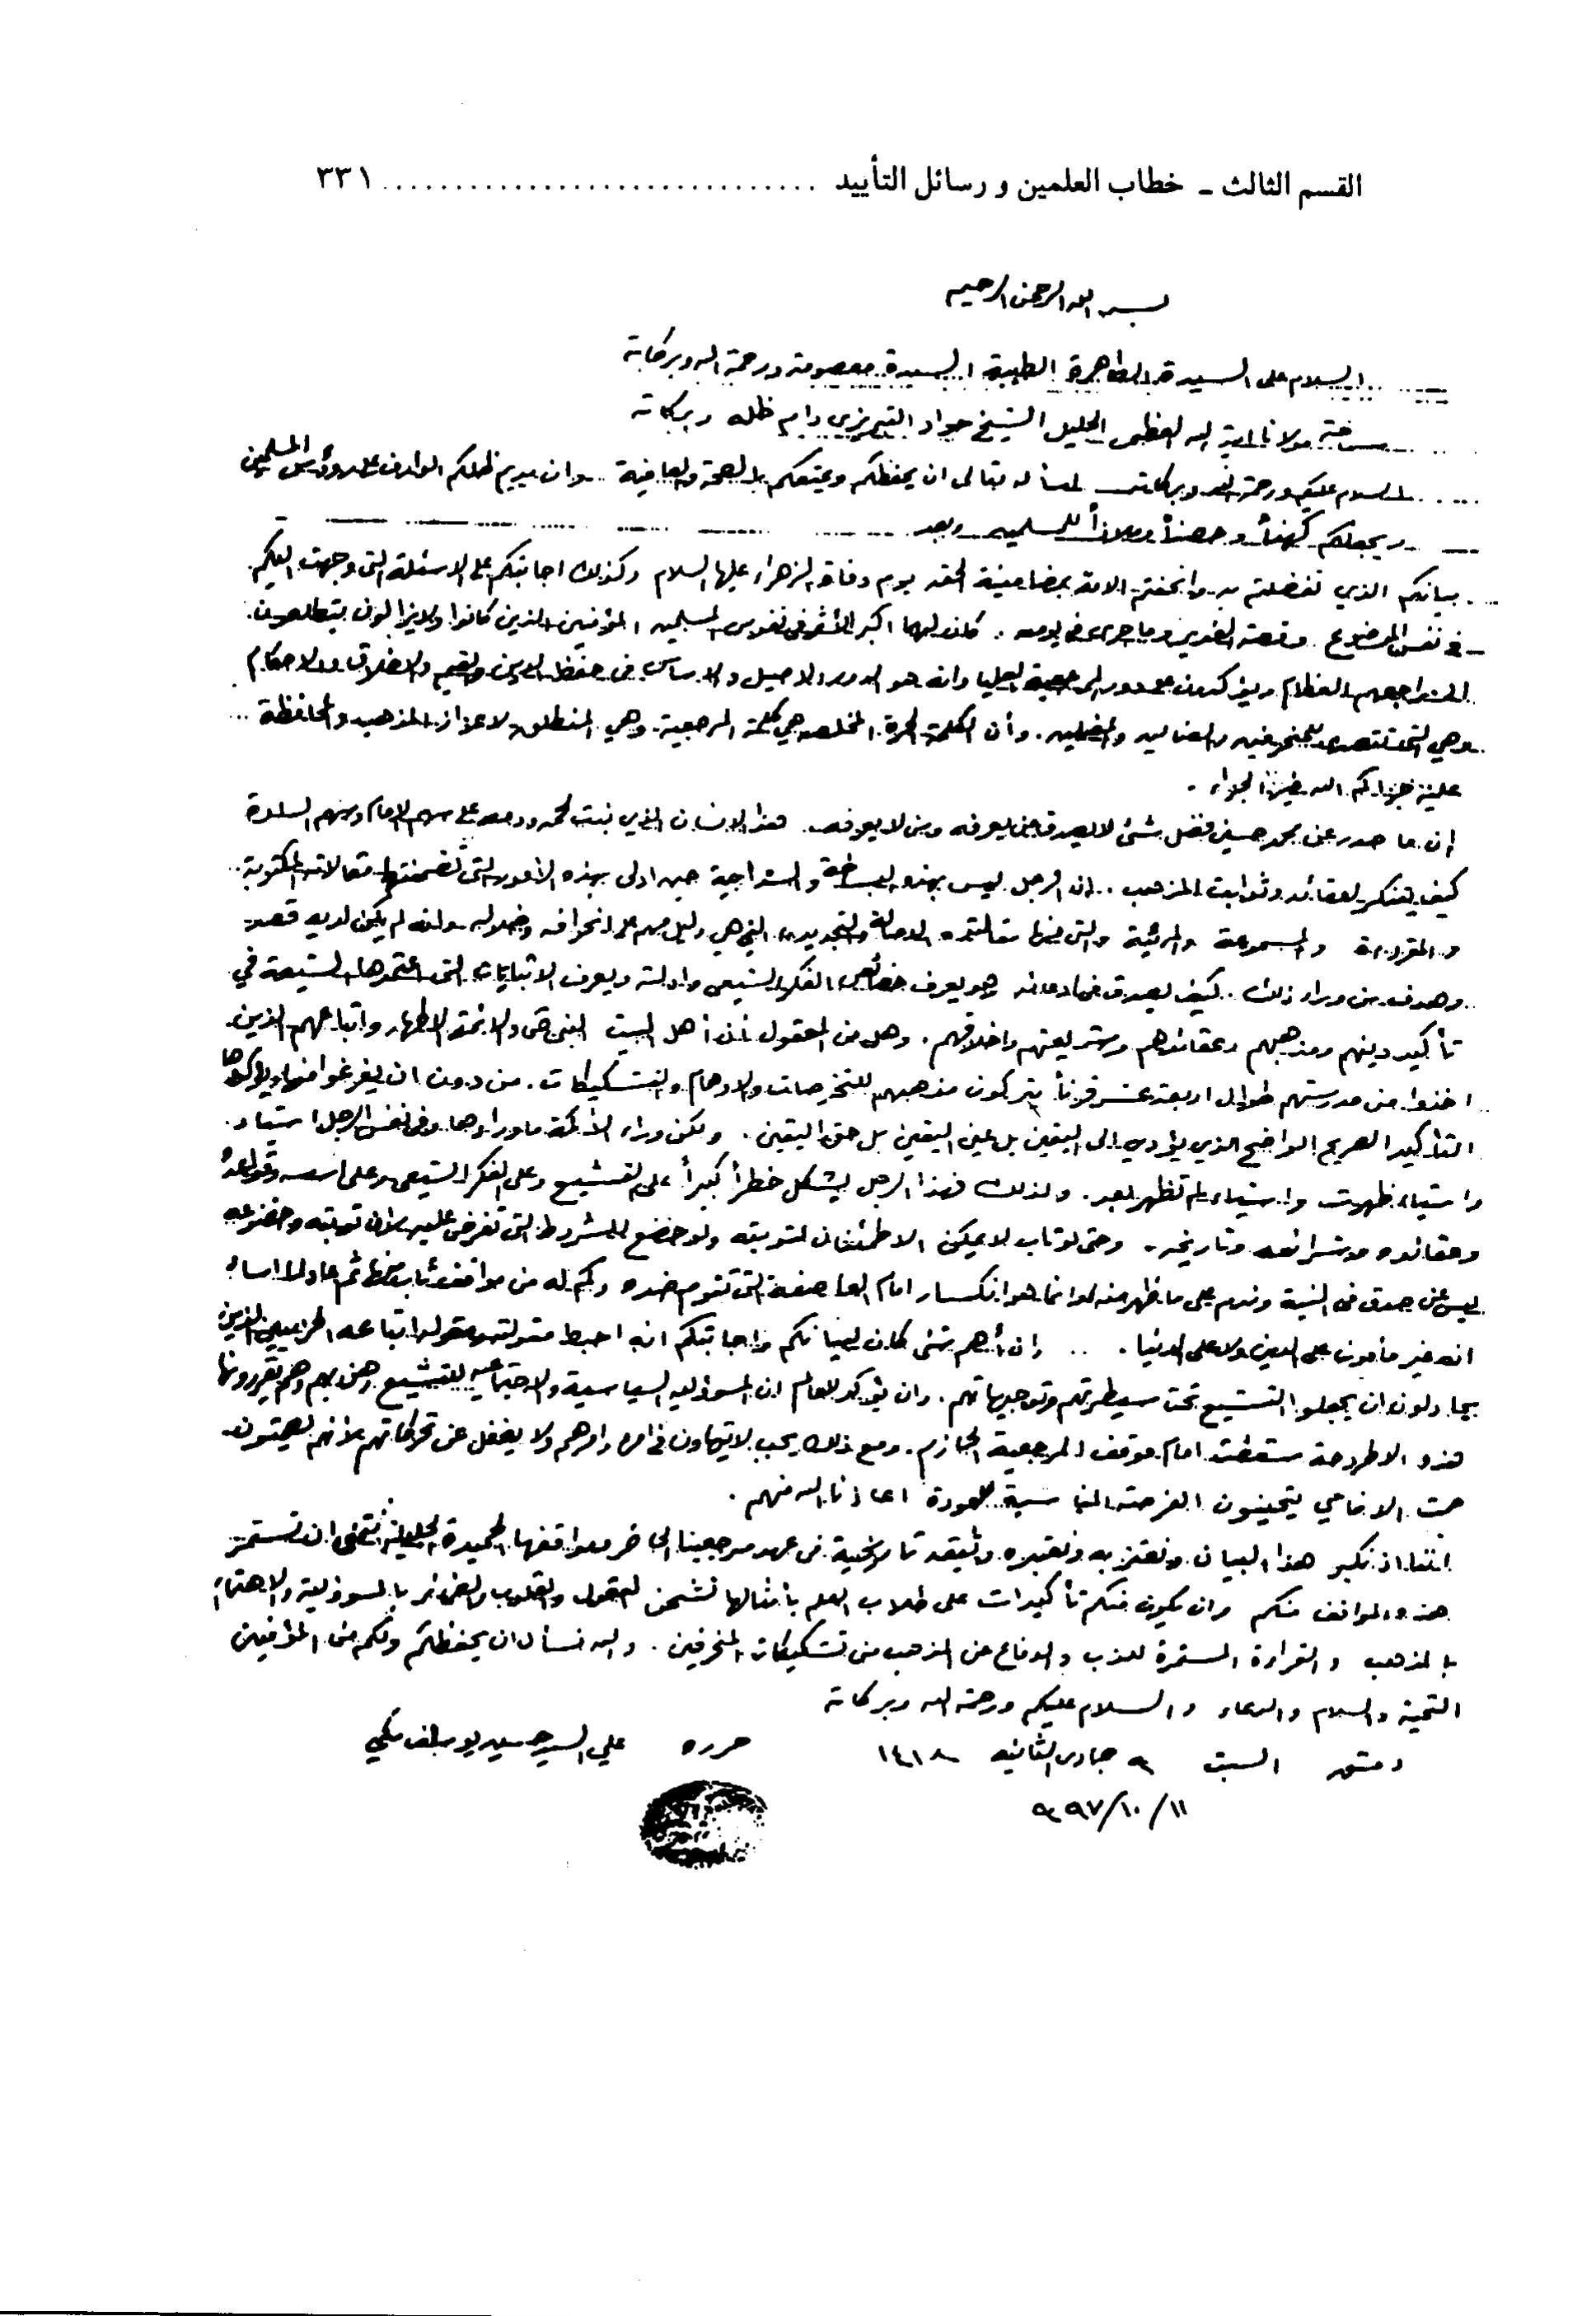 القسم الثالث ـ خطاب العلمين و رسائل التأييد .............................. ٣٣١
بسم الله الرحمن الرحيم
السلام على السيدة الطاهرة الطيبة السيدة معصومة ورحمة الله وبركاته
سماحة مولانا اية الله العظمى الجليل الشيخ جواد التبريزي دام ظله وبركاته
السلام عليكم ورحمة الله وبركاته نسأله تعالى ان يحفظكم ويمتعكم بالصحة والعافية وان يديم ظلكم الوارف على رؤوس المسلمين
ويجعلكم كهفاً وحصناً وملاذاً للمسلمين وبعد
بيانكم الذي تفضلتم به واتحفتم الامة بمضامينه الحقة يوم وفاة الزهراء عليها السلام وكذلك اجابتكم على الاسئلة التي وجهت اليكم
في نفس الموضوع وقصة الغدير وما جرى في يومه . كان لهما اكبر الأثر في نفوس المسلمين المؤمنين الذين كانوا ولا يزالون يتطلعون
لمراجعهم العظام ويؤكدون على دور المرجعية العليا وانه هو الدور الاصيل والاساس في حفظ الدين والقيم والاخلاق والاحكام
وهي التي تتصدى للمنحرفين والضالين والمضلين . وأن الكلمة الحرة المخلصة هي كلمة المرجعية وهي المنطلق لاعزاز المذهب والمحافظة
عليه فجزاكم الله خير الجزاء .
إن ما صدر عن محمد حسين فضل شئ لا يصدق ممن يعرفه ومن لا يعرفه . هذا الانسان الذي نبت لحمه ودمه على سهم الامام وسهم السادة
كيف يتنكر لعقائد وثوابت المذهب .. ان الرجل ليس بهذه البساطة والسذاجة حين ادلى بهذه الأمور التي تضمنتها مقالاته المكتوبة
والمقروءة والمسموعة والمرئية والتي منها مقالته الاصالة والتجديد التي هي دليل مهم على انحرافه وضلاله وانه لم يكن لديه قصد
وهدف من وراء ذلك . كيف يصدق في ادعائه وهو يعرف خصائص الفكر الشيعي وادلته ويعرف الاثباتات التي اعتمدها الشيعة في
تأكيد دينهم ومذهبهم وعقائدهم وشريعتهم واخلاقهم . وهل من المعقول أن أهل البيت النبي حتى والائمة الاطهار واتباعهم الذين
اخذوا من مدرستهم طوال اربعة عشر قرناً يتركون مذهبهم للتخرصات والاوهام والتشكيكات . من دون ان يفرغوا منها ويؤكدوها
التأكيد الصريح الواضح الذي يؤدي الى اليقين بل عين اليقين بل حق اليقين . ولكن وراء الأكمة ما وراءها وفي نفس الرجل اشياء
واشياء ظهرت واشياء لم تظهر بعد . ولذلك فهذا الرجل يشكل خطراً كبيراً على التشيع وعلى الفكر الشيعي وعلى اسسه وقواعده
وعقائده وشرائعه وتاريخه . وحتى لو تاب لا يمكن الاطمئنان لتوبته ولو خضع للشروط التي تفرض عليه لأن توبته وخضوعه
ليس عن صدق في النية وندم على ما ظهر منه وانما هو انكسار امام العاصفة التي تقوم ضده وكم له من مواقف تاب منها ثم عاد لما اساء
انه غير مأمون على الدين ولا على الدنيا . .. وان أهم شئ كان لبيانكم واجابتكم انه احبط مقولته ومقولة اتباعه الذين
يحاولون ان يجعلوا التشيع تحت سيطرتهم وتوجيهاتهم . وان يؤكد للعالم ان المسؤولية السياسية والاجتماعية للتشيع رهن بهم وهم يقررونها
هذه الاطروحة سقطت امام موقف المرجعية الحازم . ومع ذلك يجب لا يتهاون في امره وامرهم ولا يغفل عن تحركاتهم لأنهم يصمتون
صمت الافاعي يتحينون الفرصة المناسبة للعودة اعاذنا الله منهم .
اننا اذ نكبر هذا البيان ونعتز به ونعتبره وثيقة تاريخية في عهد مرجعيتنا الحاضر ومواقفها الحميدة الجليلة نتمنى ان تستمر
هذه المواقف منكم وان يكون منكم تأكيدات على طلاب العلم بأمثالها تشحن العقول والقلوب والضمائر بالمسؤولية والاهتمام
بالمذهب والقراءة المستمرة للذب والدفاع عن المذهب من تشكيكات المنحرفين . والله نسأل ان يحفظكم ولكم من المؤمنين
التحية والسلام والدعاء والسلام عليكم ورحمة الله وبركاته
دمشق السبت ٩ جمادى الثانية ١٤١٨ حرره علي السيد حسين يوسف مكي
١١/١٠/٩٩٧